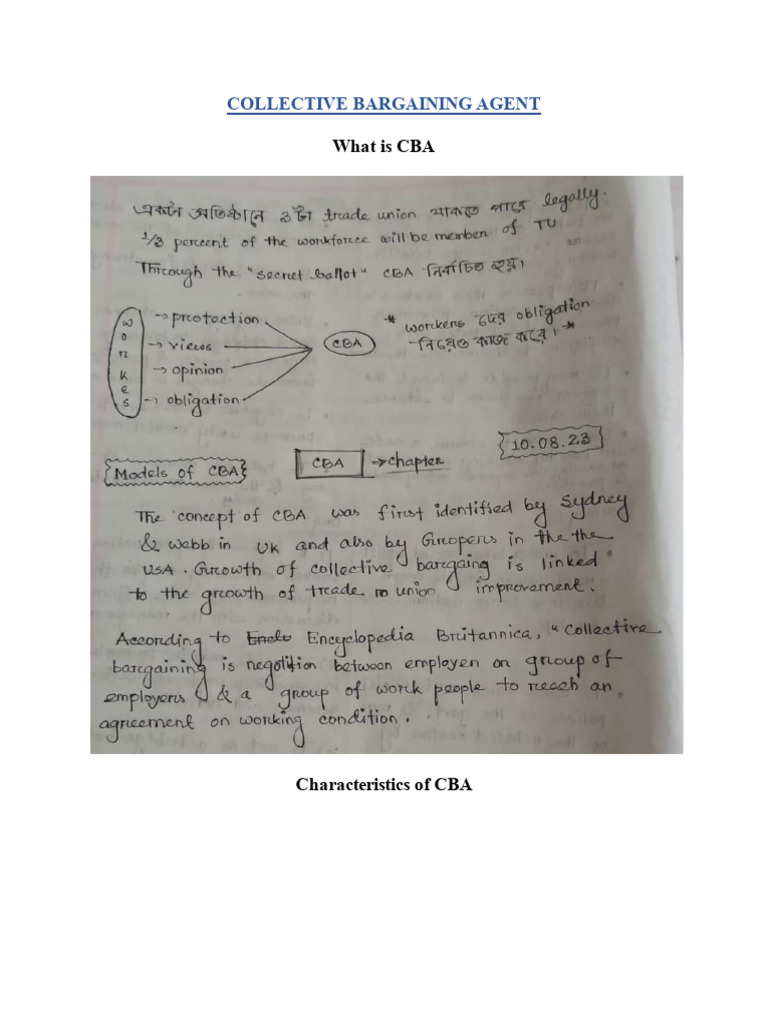 COLLECTIVE BARGAINING AGENT
What is CBA
একটা প্রতিষ্ঠানে ৩টা trade union থাকতে পারে legally.
1/3 percent of the workforce will be member of TU
Through the "secret ballot" CBA নির্বাচিত হয়।
workes
→ protection
→ views
→ opinion
→ obligation
CBA
* workers দের obligation
নিয়েও কাজ করে। *
10.08.23
Models of CBA
CBA → chapter
The concept of CBA was first identified by Sydney
& webb in UK and also by Gropers in the the
USA. Growth of collective bargaing is linked
to the growth of trade union improvement.
According to Encyclopedia Britannica, "collective
bargaining is negotition between employer or group of
employers & a group of work people to reach an
agreement on working condition.
Characteristics of CBA